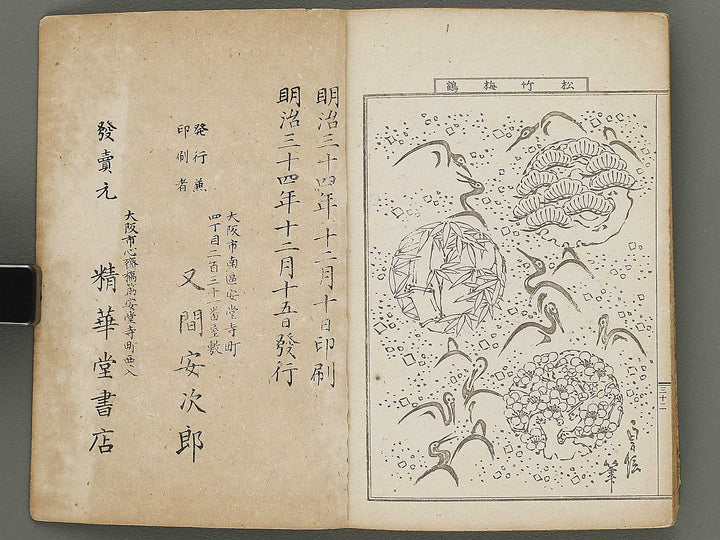 松竹梅鶴
三十二
筆
明治三十四年十二月十日印刷
明治三十四年十二月十五日發行
大阪市南區安堂寺町
四丁目二百三十一番屋敷
発行兼
印刷者
又間安次郎
大阪市心斎橋筋安堂寺町西入
發賣元
精華堂書店